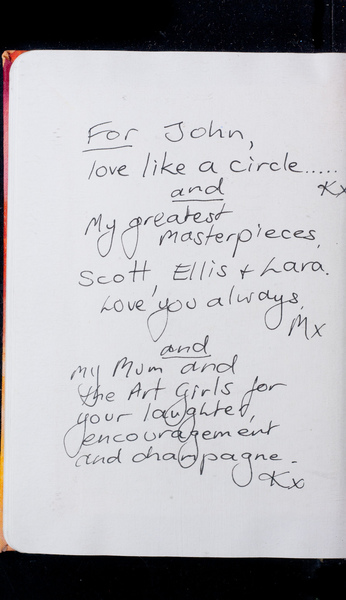 For John,
love like a circle.....
Kx
and
My greatest
masterpieces,
Scott, Ellis + Lara.
Love you always,
Mx
and
My Mum and
the Art Girls for
your laughter,
encouragement
and champagne.
Kx